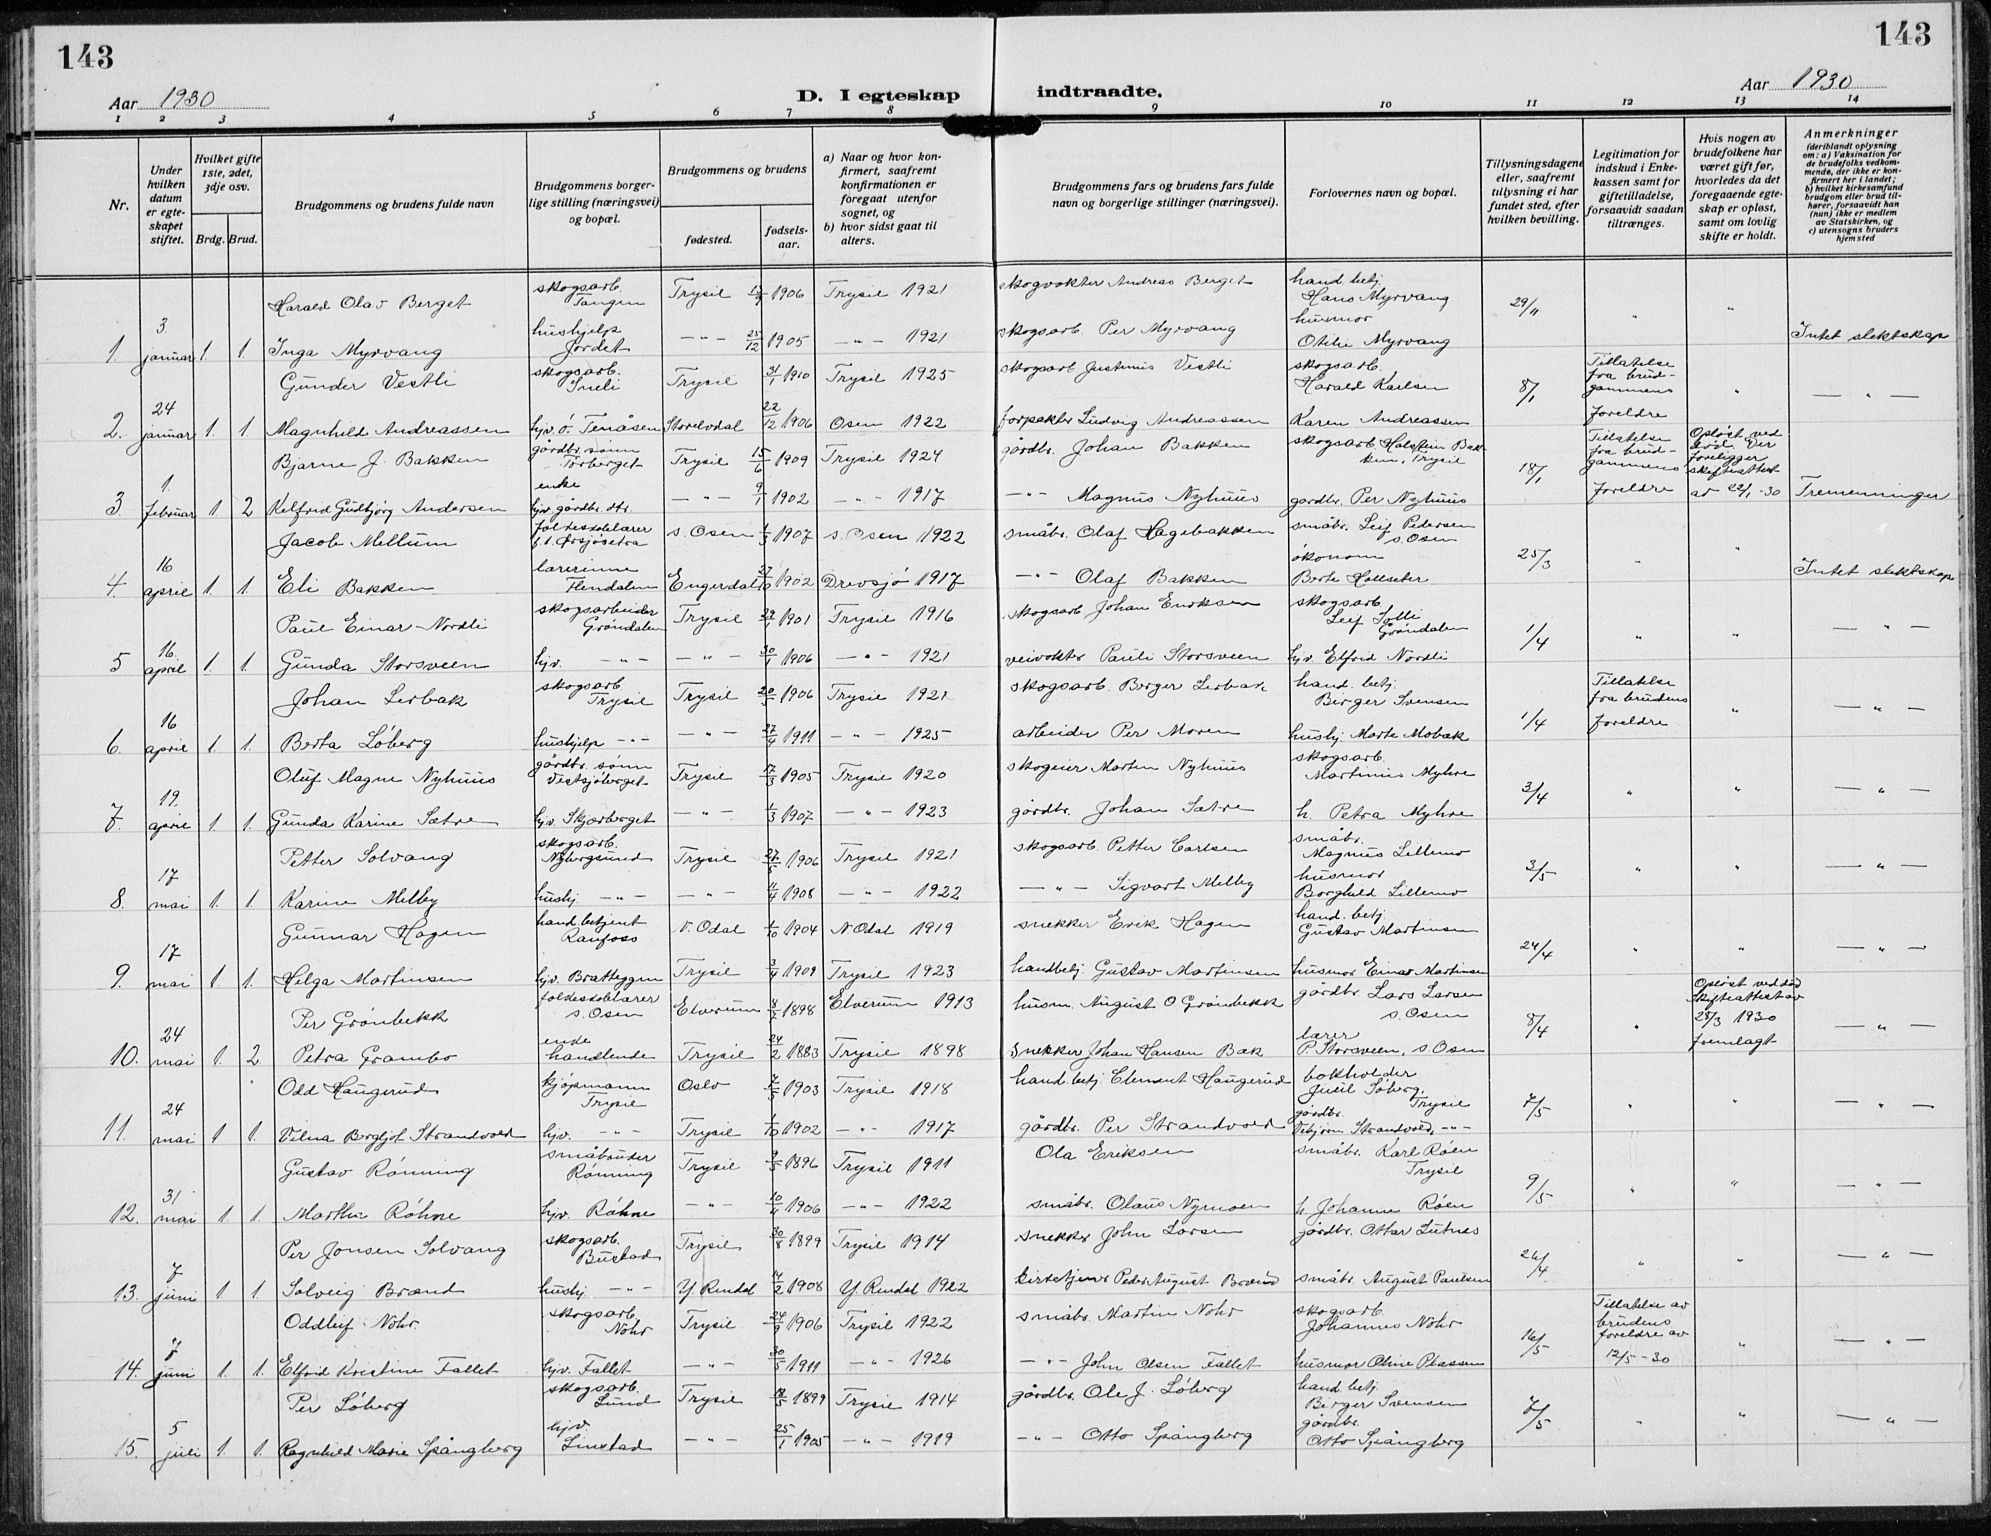 143
143
Aar 1930
D. I egteskap indtraadte.
Aar 1930
1 2 3 4 5 6 7 8 9 10 11 12 13 14
Nr.
Under hvilken datum er egteskapet stiftet.
Hvilket gifte 1ste, 2det, 3dje osv.
Brdg. Brud.
Brudgommens og brudens fulde navn
Brudgommens borgerlige stilling (næringsvei) og bopæl.
Brudgommens og brudens
fødested.
fødselsaar.
a) Naar og hvor konfirmert, saafremt konfirmationen er foregaat utenfor sognet, og
b) hvor sidst gaat til alters.
Brudgommens fars og brudens fars fulde navn og borgerlige stillinger (næringsvei).
Forlovernes navn og bopæl.
Tillysningsdagene eller, saafremt tillysning ei har fundet sted, efter hvilken bevilling.
Legitimation for indskud i Enkekassen samt for giftetilladelse, forsaavidt saadan tiltrænges.
Hvis nogen av brudefolkene har været gift før, hvorledes da det foregaaende egteskap er opløst, samt om lovlig skifte er holdt.
Anmerkninger (deriblandt oplysning om: a) Vaksination for de brudefolks vedkommende, der ikke er konfirmert her i landet; b) hvilket kirkesamfund brudgom eller brud tilhører, forsaavidt han (hun) ikke er medlem av Statskirken, og c) utensogns bruders hjemsted
Harald Olav Berget skogsarb. Tangen Trysil 1906 Trysil 1921 skogvokter Andreas Berget hand. betj. Hans Myrvang 29/11 "
1. 3. januar 1. 1. Inga Myrvang hushjelp Jordet -"- 25/12 1905 -"- 1921 skogsarb. Per Myrvang husmor Otilie Myrvang Intet slektskap
Gunder Vestli skogsarb. Sneli Trysil 31/1 1910 Trysil 1925 skogsarb Justinus Vestli skogsarb. Harald Karlsen 8/1 Tillatelse fra brudgommens foreldre " -"-
2. 24 januar 1. 1 Magnhild Andreassen hjv. Ö. Tenåsen Storelvdal 22/12 1906 Osen 1922 forpakter Ludvig Andreassen Karen Andreassen
Bjarne J. Bakken gårdbr. sønn Torberget Trysil 15/6 1909 Trysil 1924 gårdbr. Johan Bakken skogsarb. Halstein Bakken, Trysil 18/1 Tillatelse fra brudgommens foreldre Opløst ved død. Der foreligger skifteattest av 22/1-30
3 1. februar 1 2 Kelfrid Gudbjørg Andersen enke hjv. gårdbr. dtr. -"- 9/1 1902 -"- 1917 -"- Magnus Nyhuus gardbr. Per Nyhuus Tremenninger
Jacob Mellum folkeskolelærer s. Osen 1907 s. Osen 1922 småbr. Olaf Hagebakken småbr. Leif Pedersen s. Osen 25/3 " "
4. 16 april 1. 1. Eli Bakken lærerinne Flendalen Engerdal 1902 Drevsjø 1917 -"- Olaf Bakken økonom Berte Hollseter Intet slektskap
Paul Einar Nordli skogsarbeider Grøndalen Trysil 1901 Trysil 1916 skogsarb Johan Eriksen skogsarb. Leif Solli Grøndalen 1/4 " " -"-
5 16. april 1. 1. Gunda Storsveen hjv. -"- -"- 30/1 1906 -"- 1921 veivokter Pauli Storsveen hjv. Elfrid Nordli
Johan Lerbak skogsarb. Trysil Trysil 1906 Trysil 1921 skogsarb. Berger Lerbak hand. betj. Birger Svensen 1/4 Tillatelse fra brudens foreldre " -"-
6. 16 april 1. 1. Berta Løberg hushjelp -"- -"- 27/4 1911 -"- 1925 arbeider Per Moren hushj. Marte Mobak
Oluf Magne Nyhuus gårdbr. sønn Vestsjøberget Trysil 17/3 1905 Trysil 1920 skogeier Morten Nyhuus skogsarb. Martinus Myhre 3/4 " " -"-
7. 19. april 1. 1. Gunda Karine Sætre hjv. Skjærberget -"- 1/3 1907 -"- 1923 gårdbr. Johan Sætre h. Petra Myhre
Petter Solvang skogsarb. Nybergsund Trysil 27/5 1906 Trysil 1921 skogsarb. Petter Carlsen småbr. Magnus Lillemo 3/5 " " -"-
8. 17 mai 1. 1. Karine Melby hushj. -"- -"- 11/4 1908 -"- 1922 -"- Sigvart Melby husmor Borghild Lillemo
Gunnar Hagen hand. betjent Raufoss N. Odal 1/10 1904 N Odal 1919 snekker Erik Hagen hand. betj. Gustav Martinsen 24/4 " " -"-
9. 17 mai 1 1. Helga Martinsen hjv. Bratteggen Trysil 3/4 1909 Trysil 1923 handbetj. Gustav Martinsen husmor Einar Martinsen
Per Grønbekk folkeskolelærer s. Osen Elverum 8/2 1898 Elverum 1913 husm. August O Grønbekk gårdbr. Lars Larsen s. Osen 8/4 " Opløst ved død Skifteattest av 28/3 1930 fremlagt -"-
10. 24 mai 1. 2 Petra Grambo enke handlende Trysil 24/2 1883 Trysil 1898 Snekker Johan Hansen Bak lærer P. Storsveen, s. Osen
Odd Haugerud kjøpmann Trysil Oslo 7/5 1903 Trysil 1918 hand. betj. Clement Haugerud bokholder Juul Søberg, Trysil 7/5 " " -"-
11. 24 mai 1 1. Vilna Bergljot Strandvold hjv. -"- Trysil 1/10 1902 -"- 1917 gårdbr. Per Strandvold gårdbr. Vebjørn Strandvold, -"-
Gustav Rønning småbruker Rønning Trysil 9/5 1896 Trysil 1911 Ola Eriksen småbr. Karl Røen Trysil 9/5 " " -"-
12. 31 mai 1. 1. Marthe Røhne hjv. Røhne -"- 10/11 1906 -"- 1922 småbr. Olaus Nymoen h. Johanne Røen
Per Jonsen Solvang skogsarb. Bustad Trysil 30/8 1899 Trysil 1914 snekker John Larsen gårdbr. Ottar Lutnes 26/4 " " -"-
13. 7 juni 1 1. Solveig Brænd hushj. -"- Y Rendal 14/2 1908 Y Rendal 1922 kirketjener Peder August Brænd småbr. August Paulsen
Oddleif Nohr. skogsarb. Nohr Trysil 24/9 1906 Trysil 1922 småbr. Martin Nohr skogsarb. Johannes Nohr 16/5 Tillatelse av brudens foreldre av 12/5-30 " -"-
14. 7 juni 1. 1. Elfrid Kristine Fallet hjv. Fallet -"- 30/5 1911 -"- 1926 -"- John Olsen Fallet husmor Oline Plassen
Per Løberg skogsarb. Lund Trysil 1899 Trysil 1914 gårdbr. Ole J. Løberg hand. betj. Birger Svensen 7/5 " " -"-
15. 5 juli 1. 1. Ragnhild Marie Spångberg hjv. Linstad -"- 25/1 1905 -"- 1919 -"- Otto Spångberg gårdbr. Otto Spångberg